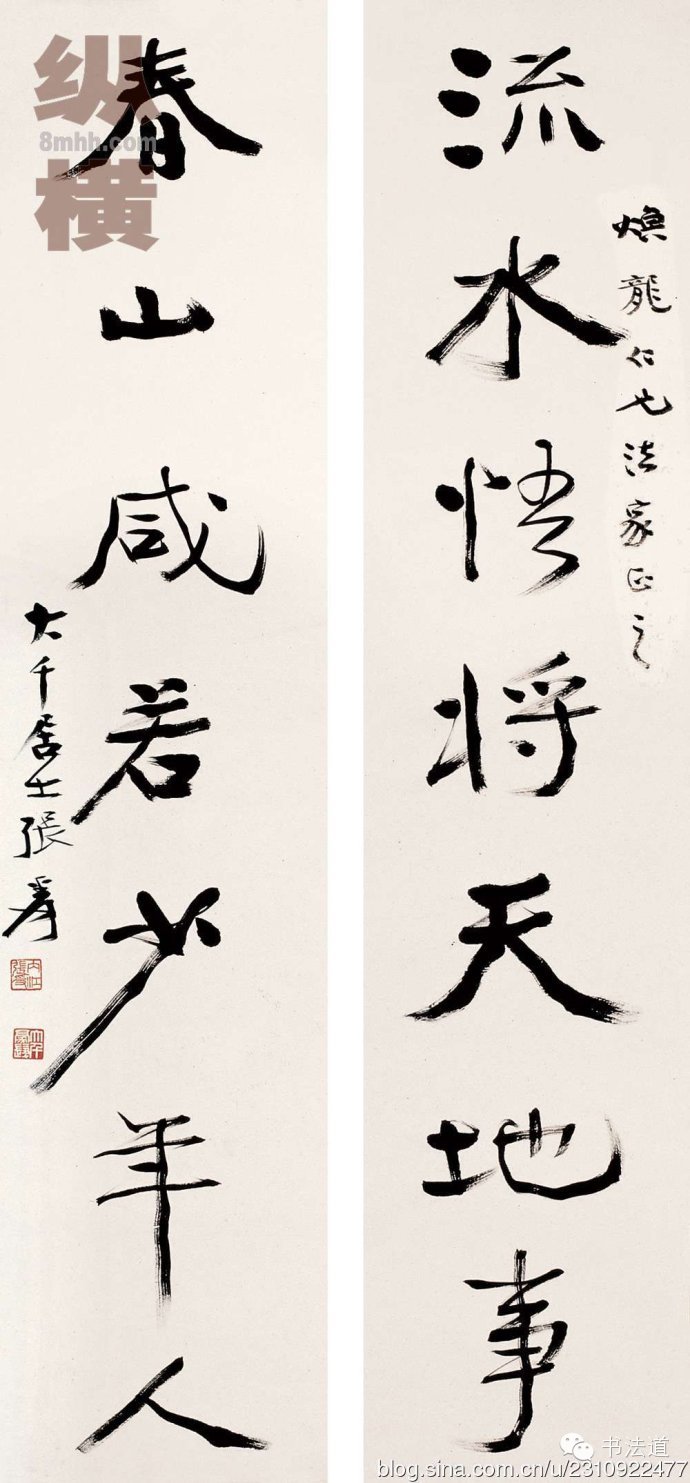 煥龍仁兄法家正之
流水悟将天地事
春山咸若少年人
大千居士張爰
内江張爰
纵
8mhh.com
横
书法道
blog.sina.com.cn/u/2310922477